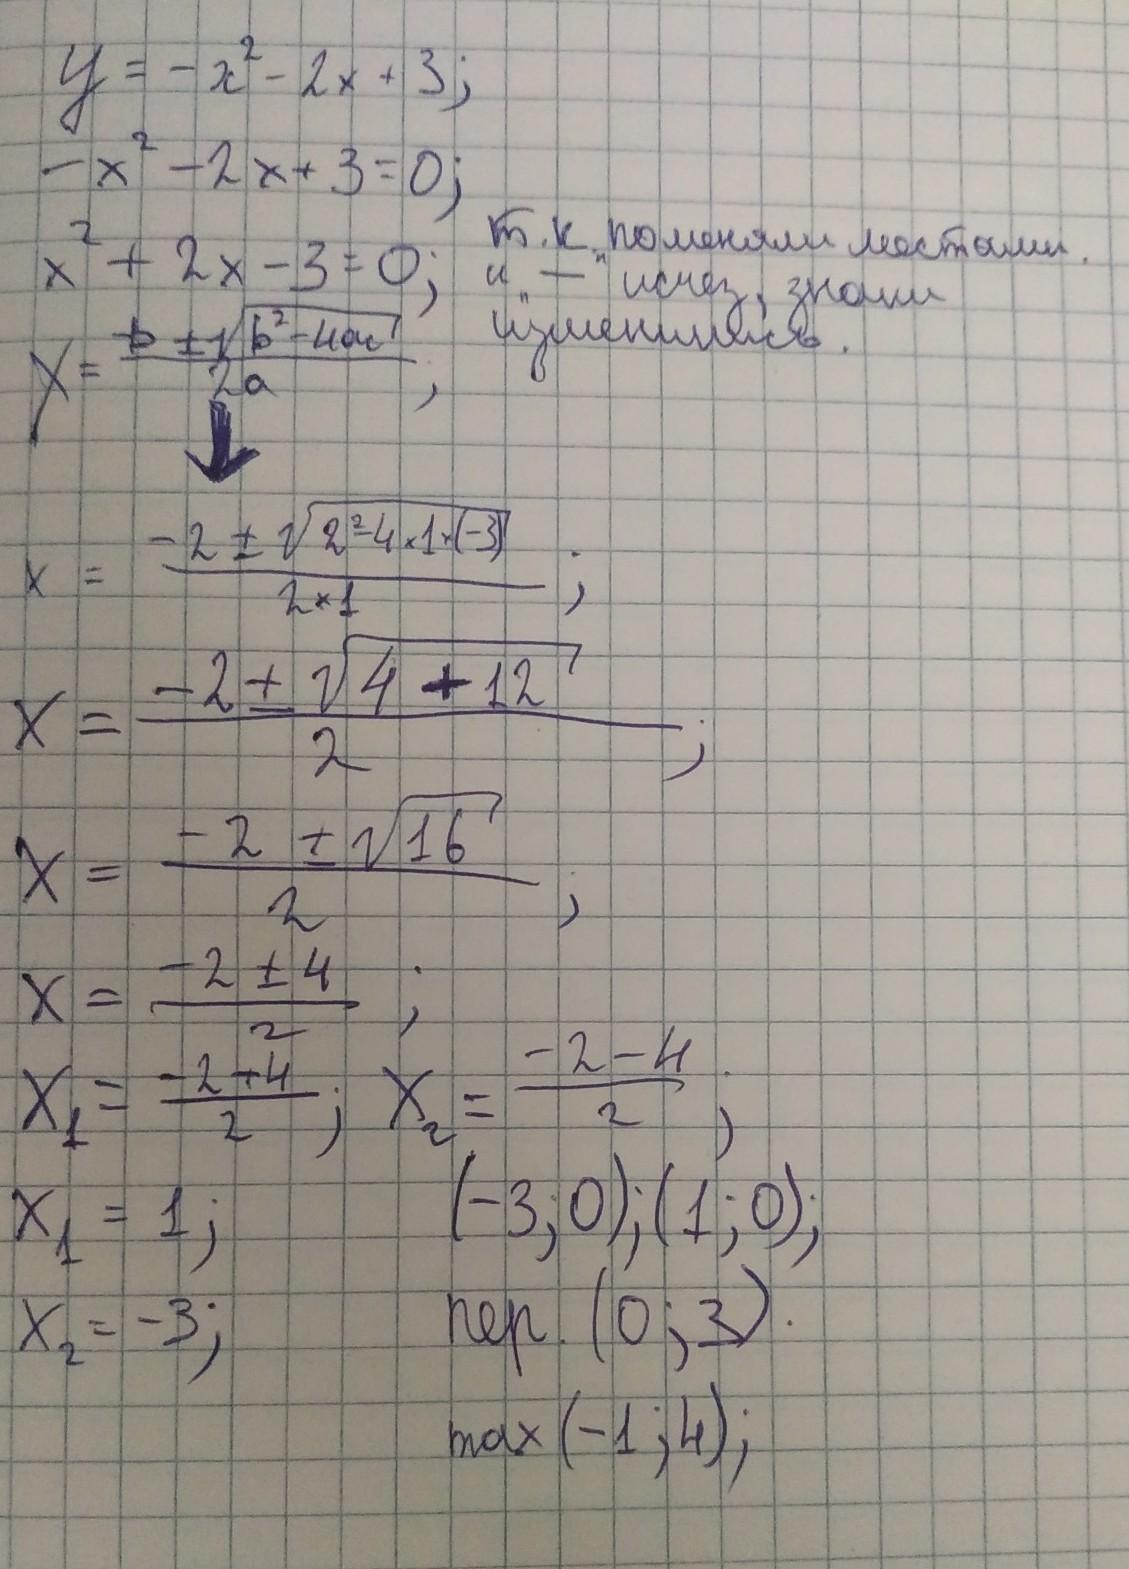 y = -x² - 2x + 3;
-x² - 2x + 3 = 0;
x² + 2x - 3 = 0; т.к. поменяли местами
и "—" исчез, знаки
изменились.
x = (-b ± √(b² - 4ac)) / 2a;
x = (-2 ± √(2² - 4 × 1 × (-3))) / (2 × 1);
x = (-2 ± √(4 + 12)) / 2;
x = (-2 ± √16) / 2;
x = (-2 ± 4) / 2;
x₁ = (-2 + 4) / 2; x₂ = (-2 - 4) / 2;
x₁ = 1; (-3; 0); (1; 0);
x₂ = -3; пер. (0; 3).
max (-1; 4);